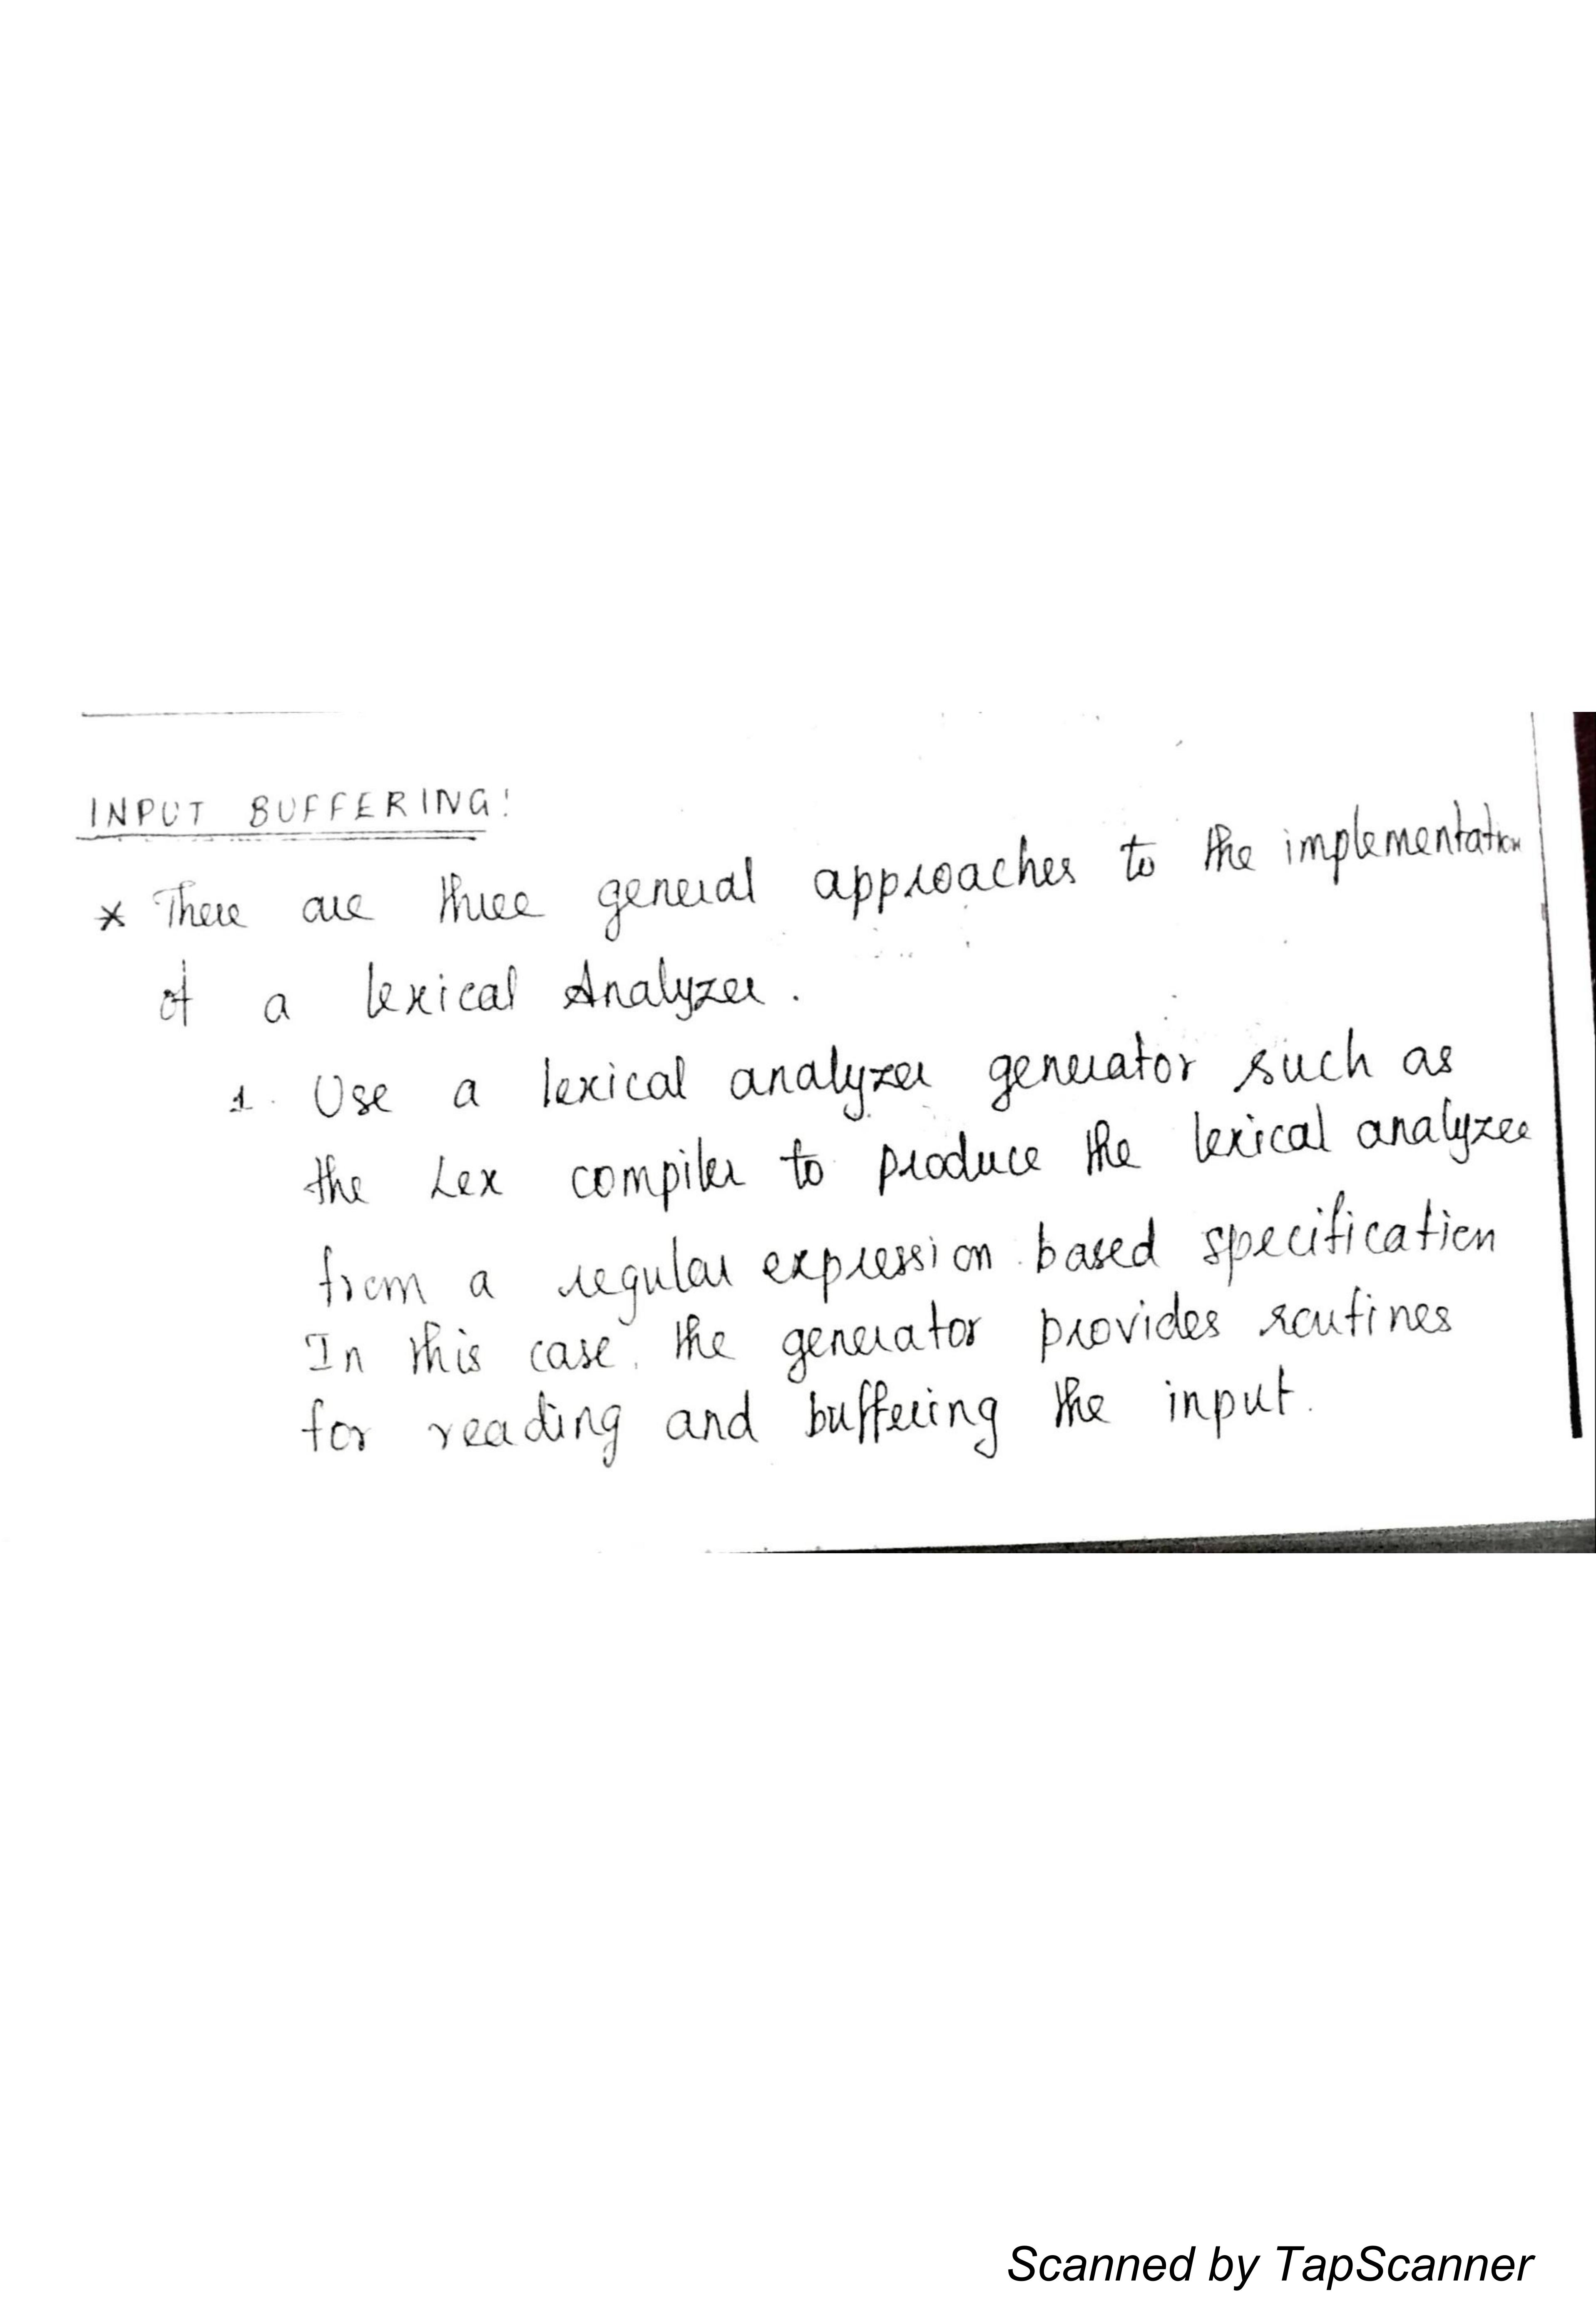 INPUT BUFFERING:
* There are three general approaches to the implementation
of a lexical Analyzer.
1. Use a lexical analyzer generator such as
the Lex compiler to produce the lexical analyzer
from a regular expression based specification
In this case, the generator provides routines
for reading and buffering the input.
Scanned by TapScanner